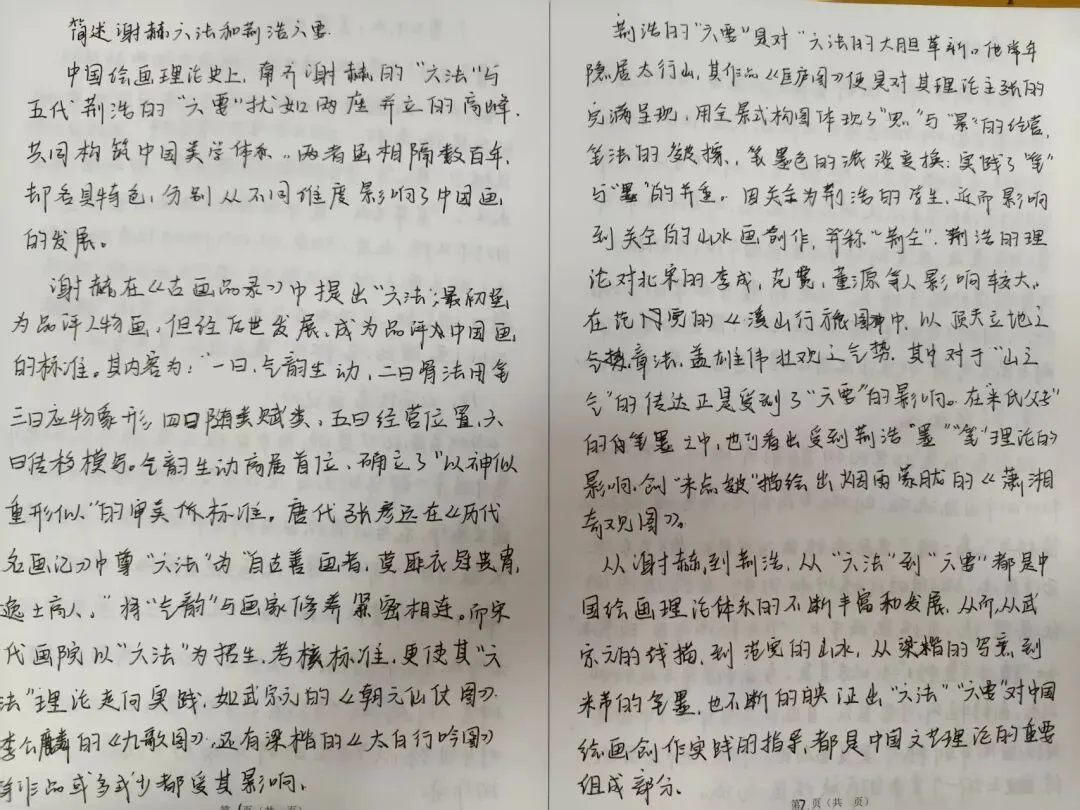 简述谢赫六法和荆浩六要.
中国绘画理论史上,南齐谢赫的“六法”与
五代荆浩的“六要”犹如两座并立的高峰,
共同构筑中国美学体系.两者虽相隔数百年,
却各具特色,分别从不同维度影响了中国画
的发展。
谢赫在《古画品录》中提出“六法”,最初虽
为品评人物画,但经后世发展,成为品评中国画
的标准。其内容为:“一曰,气韵生动,二曰骨法用笔
三曰应物象形,四曰随类赋类,五曰经营位置,六
曰传移模写。气韵生动高居首位,确立了“以神似
重形似”的审美标准。唐代张彦远在《历代
名画记》中尊“六法”为“自古善画者,莫非衣冠贵胄,
逸士高人,”将“气韵”与画家修养紧密相连。而宋
代画院以“六法”为招生,考核标准,更使其“六
法”理论走向实践,如武宗元的《朝元仙仗图》.
李公麟的《九歌图》,还有梁楷的《太白行吟图》
等作品或多或少都受其影响.
第1页(共 页)
荆浩的“六要”是对“六法的大胆革新。他常年
隐居太行山,其作品《匡庐图》便是对其理论主张的
完满呈现,用全景式构图体现了“思”与“景”的经营,
笔法的皴擦、笔墨色的浓淡变换;实践了“笔”
与“墨”的并重。因关仝为荆浩的学生,近而影响
到关仝的山水画创作,并称“荆仝”.荆浩的理
论对北宋的李成,范宽,董源等人影响较大。
在范宽的《溪山行旅图》中,以顶天立地之
气势章法,盖雄伟壮观之气势.其中对于“山之
气”的传达正是受到了“六要”的影响。在“米氏父子”
的笔墨之中,也可看出受到荆浩“墨”“笔”理论的
影响,创“米点皴”描绘出烟雨蒙胧的《潇湘
奇观图》。
从谢赫,到荆浩,从“六法”到“六要”都是中
国绘画理论体系的不断丰富和发展.从而,从武
宗元的线描,到范宽的山水,从梁楷的写意,到
米芾的笔墨,也不断的映证出“六法”“六要”对中国
绘画创作实践的指导,都是中国文艺理论的重要
组成部分.
第2页(共 页)